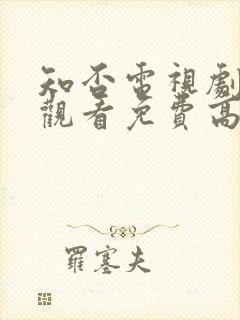 知否電視劇
觀看免費高
羅塞夫